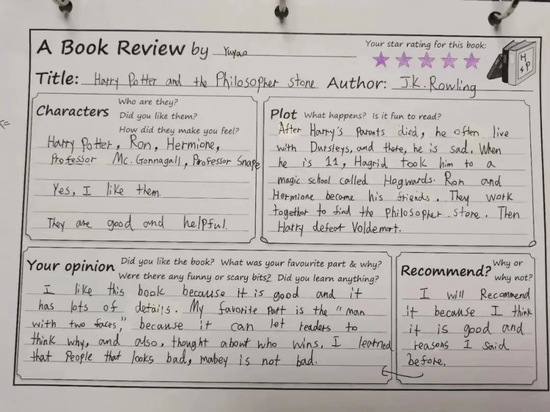 A Book Review by Yuyao
Your star rating for this book:
Title: Harry Potter and the Philosopher Stone Author: J.K. Rowling
Characters Who are they?
Did you like them?
How did they make you feel?
Harry Potter, Ron, Hermione,
Professor Mc.Gonnagall, Professor Snape
Yes, I like them
They are good and helpful.
Plot What happens? Is it fun to read?
After Harry's parents died, he often live
with Dursleys, and there, he is sad. When
he is 11, Hagrid took him to a
magic school called Hogwards. Ron and
Hermione became his friends. They work
together to find the Philosopher store. Then
Harry defeat Voldemort.
Your opinion Did you like the book? What was your favourite part & why?
Were there any funny or scary bits? Did you learn anything?
I like this book because it is good and it
has lots of details. My favorite part is the "man
with two faces," because it can let readers to
think why, and also, thought about who wins. I learned
that people that looks bad, mabey is not bad.
Recommend? Why or
why not?
I will Recommend
it because I think
it is good and
reasons I said
before.
H
P